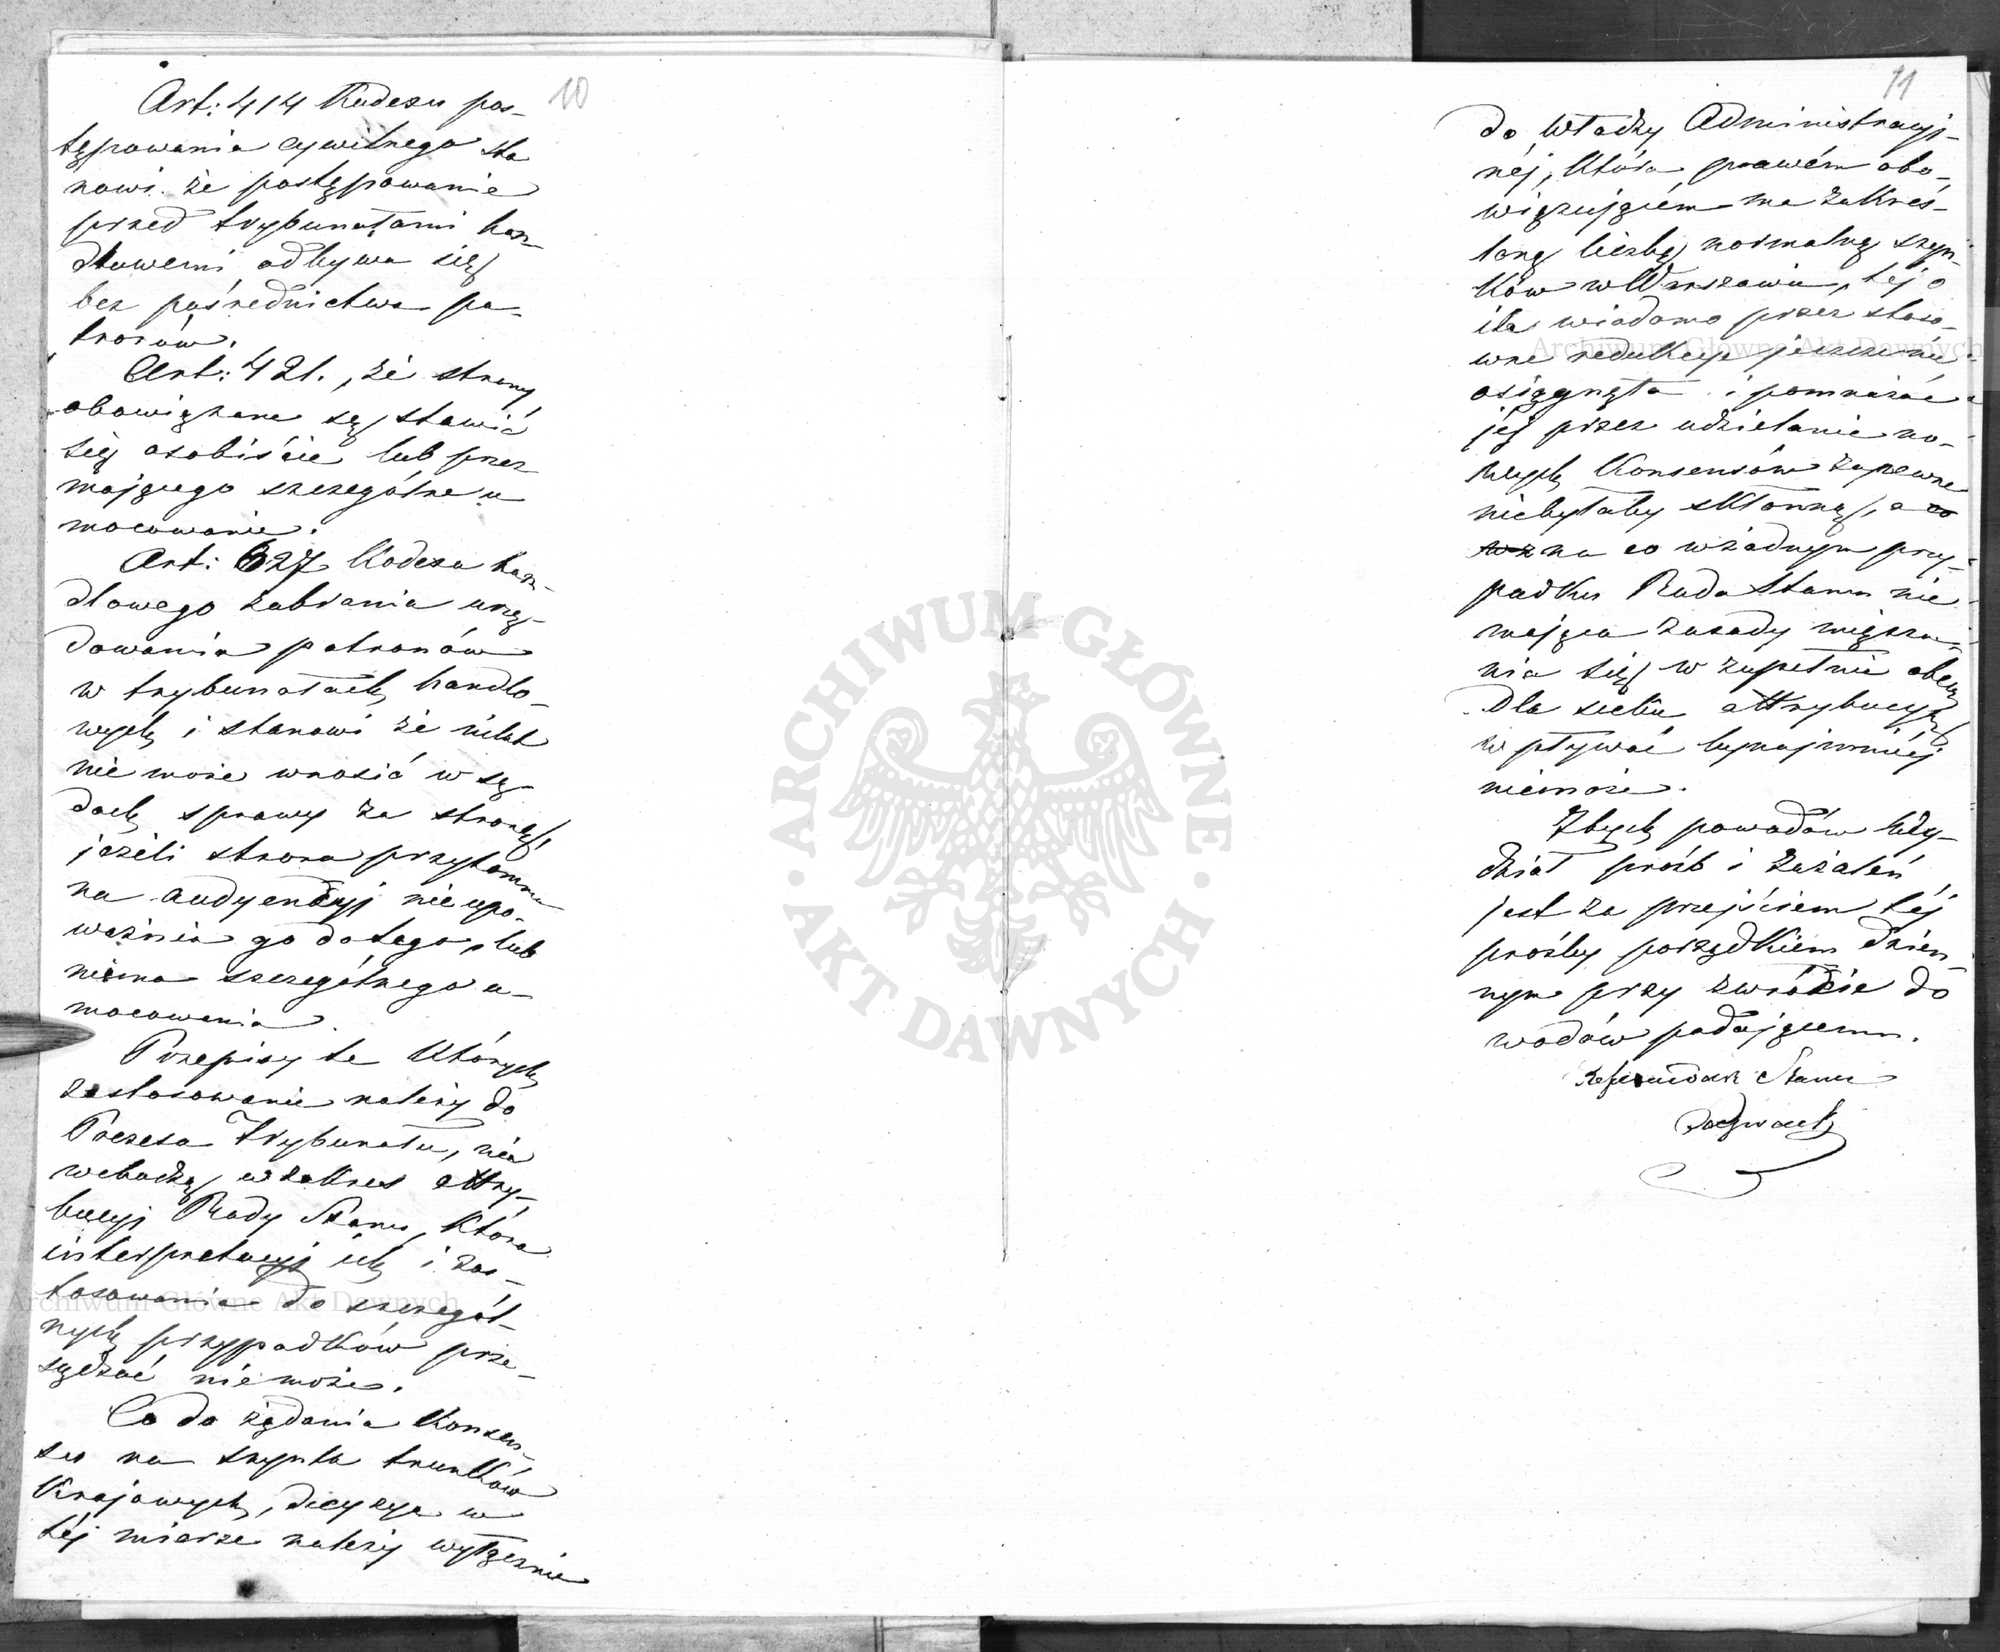 10
Art: 414 Kodexu pos-
tępowania cywilnego sta
nowi że postępowanie
przed trybunałami han-
dlowemi odbywa się
bez pośrednictwa pa-
tronów.
Art: 421., że strony
obowiązane są stawić
się osobiście lub przez
mającego szczególne u
mocowanie.
Art: 627 Kodexu han-
dlowego zabrania urzę-
dowania patronów
w trybunałach handlo-
wych i stanowi że nikt
nie może wnosić w są-
dach sprawy za stronę,
jeżeli strona przytomna
na audyencyi nie upo-
ważnia go do tego, lub
niema szczególnego u-
mocowania.
Przepisy te których
zastosowanie należy do
Prezesa Trybunału, nie
wchodzą w zakres attry-
bucyi Rady Stanu, która
interpretacyi ich i zas-
tosowania do szczegól-
nych przypadków prze-
sądzać nie może.
Co do żądania Konsen-
su na szynk trunków
Krajowych, decyzya w
téj mierze należy wyłącznie
11
do Władzy Administracyj-
néj, która prawém obo-
wiązującém ma zakreś-
loną liczbę normalną szyn-
ków w Warszawie, téj o
ile wiadomo przez stoso-
wne redukcye jeszcze nie
osiągnęła i pomnażać
jéj przez udzielanie no-
wych Konsensów zapewne
niebyłaby skłonną, a co
na co w żadnym przy-
padku Rada Stanu nie
mająca zasady miesza-
nia się w zupełnie obce
dla siebie attrybucye
wpływać bynajmniéj
niemoże.
Z tych powodów Wy-
dział próśb i zażaleń
jest za przejściem téj
prośby porządkiem dzien-
nym przy zwrocie do
wodów podającemu.
Referendarz Stanu